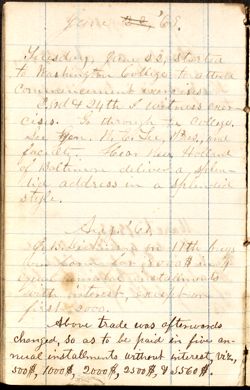 June '68.
Tuesday, June 23, started
to Washington College to attend
commencement exercises.
23rd & 24th I witness exer-
cises. Go through the College.
See Gen. R. E. Lee, Pres, and
faculty. Hear Rev. Holland
of Baltimore deliver a splen-
did address in a splendid
style.
on 11th buys
our land for
equal annual installments
with interest, except on
first 500.
Above trade was afterwards
changed, so as to be paid in five an-
nual installments without interest, viz,
500$, 1000$, 2000$, 2500$, & 3560$.